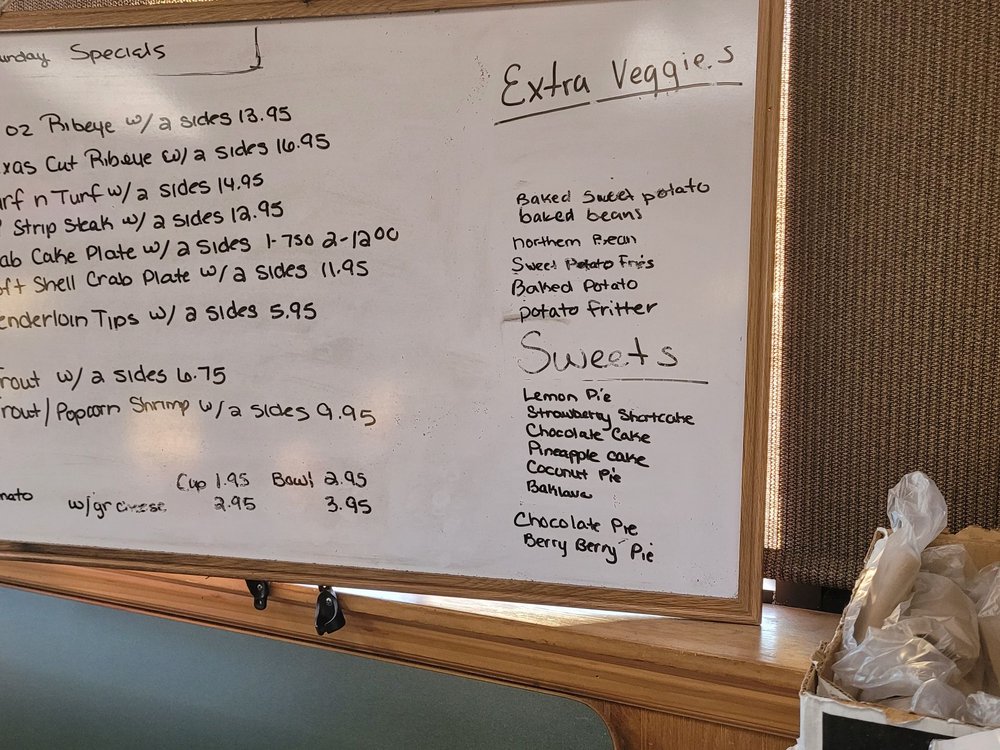 Specials
oz Ribeye w/ 2 sides 13.95
xas Cut Ribeye w/ 2 sides 16.95
urf n Turf w/ 2 sides 14.95
Strip Steak w/ 2 sides 12.95
ab Cake Plate w/ 2 sides 1-750 2-1200
oft Shell Crab Plate w/ 2 sides 11.95
enderloin Tips w/ 2 sides 5.95
rout w/ 2 sides 6.75
rout/Popcorn Shrimp w/ 2 sides 9.95
Cup 1.95 Bowl 2.95
mato w/gr cheese 2.95 3.95
Extra Veggies
Baked Sweet potato
baked beans
northern Bean
Sweet Potato Fries
Baked Potato
potato fritter
Sweets
Lemon Pie
Strawberry Shortcake
Chocolate Cake
Pineapple cake
Coconut Pie
Baklava
Chocolate Pie
Berry Berry Pie